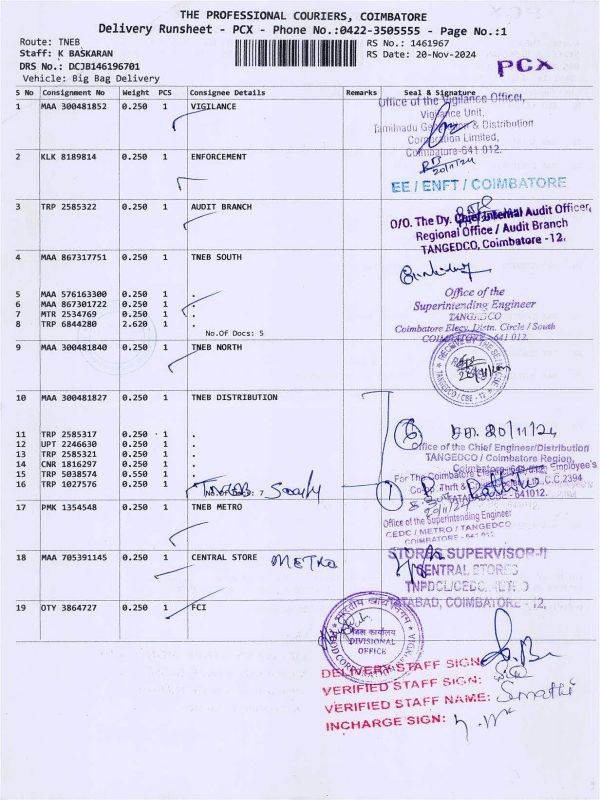 THE PROFESSIONAL COURIERS, COIMBATORE
Delivery Runsheet - PCX - Phone No.:0422-3505555 - Page No.:1
Route: TNEB RS No.: 1461967
Staff: K BASKARAN RS Date: 20-Nov-2024
DRS No.: DCJB146196701
PCX
Vehicle: Big Bag Delivery
S No Consignment No Weight PCS Consignee Details Remarks Seal & Signature
1 MAA 300481852 0.250 1 VIGILANCE
Office of the Vigilance Officer,
Vigilance Unit,
Tamilnadu Generation & Distribution
Corporation Limited,
Coimbatore-641 012.
2 KLK 8189814 0.250 1 ENFORCEMENT
20/11/24
EE / ENFT / COIMBATORE
3 TRP 2585322 0.250 1 AUDIT BRANCH
O/O. The Dy. Chief Internal Audit Officer,
Regional Office / Audit Branch
TANGEDCO, Coimbatore - 12.
4 MAA 867317751 0.250 1 TNEB SOUTH
5 MAA 576163300 0.250 1 .
6 MAA 867301722 0.250 1 .
7 MTR 2534769 0.250 1 .
8 TRP 6844280 2.620 1 .
No.Of Docs: 5
Office of the
Superintending Engineer
TANGEDCO
Coimbatore Elecy. Distn. Circle / South
COIMBATORE - 641 012.
9 MAA 300481840 0.250 1 TNEB NORTH
TANGEDCO / CBE - 12
10 MAA 300481827 0.250 1 TNEB DISTRIBUTION
11 TRP 2585317 0.250 1 .
12 UPT 2246630 0.250 1 .
13 TRP 2585321 0.250 1 .
14 CNR 1816297 0.250 1 .
15 TRP 5038574 0.550 1 .
16 TRP 1027576 0.250 1 .
No.Of Docs: 7
Society
6
20/11/24
Office of the Chief Engineer/Distribution
TANGEDCO / Coimbatore Region,
Coimbatore-641 012
1
20/11/24
17 PMK 1354548 0.250 1 TNEB METRO
Office of the Superintending Engineer
CEDC / METRO / TANGEDCO
COIMBATORE - 641 012.
18 MAA 705391145 0.250 1 CENTRAL STORE METRO
STORES SUPERVISOR-II
CENTRAL STORES
TNPDCL/CEDC, METRO
TATABAD, COIMBATORE - 12.
19 OTY 3864727 0.250 1 FCI
DIVISIONAL
OFFICE
DELIVERY STAFF SIGN:
VERIFIED STAFF SIGN:
VERIFIED STAFF NAME: Sumathi
INCHARGE SIGN: